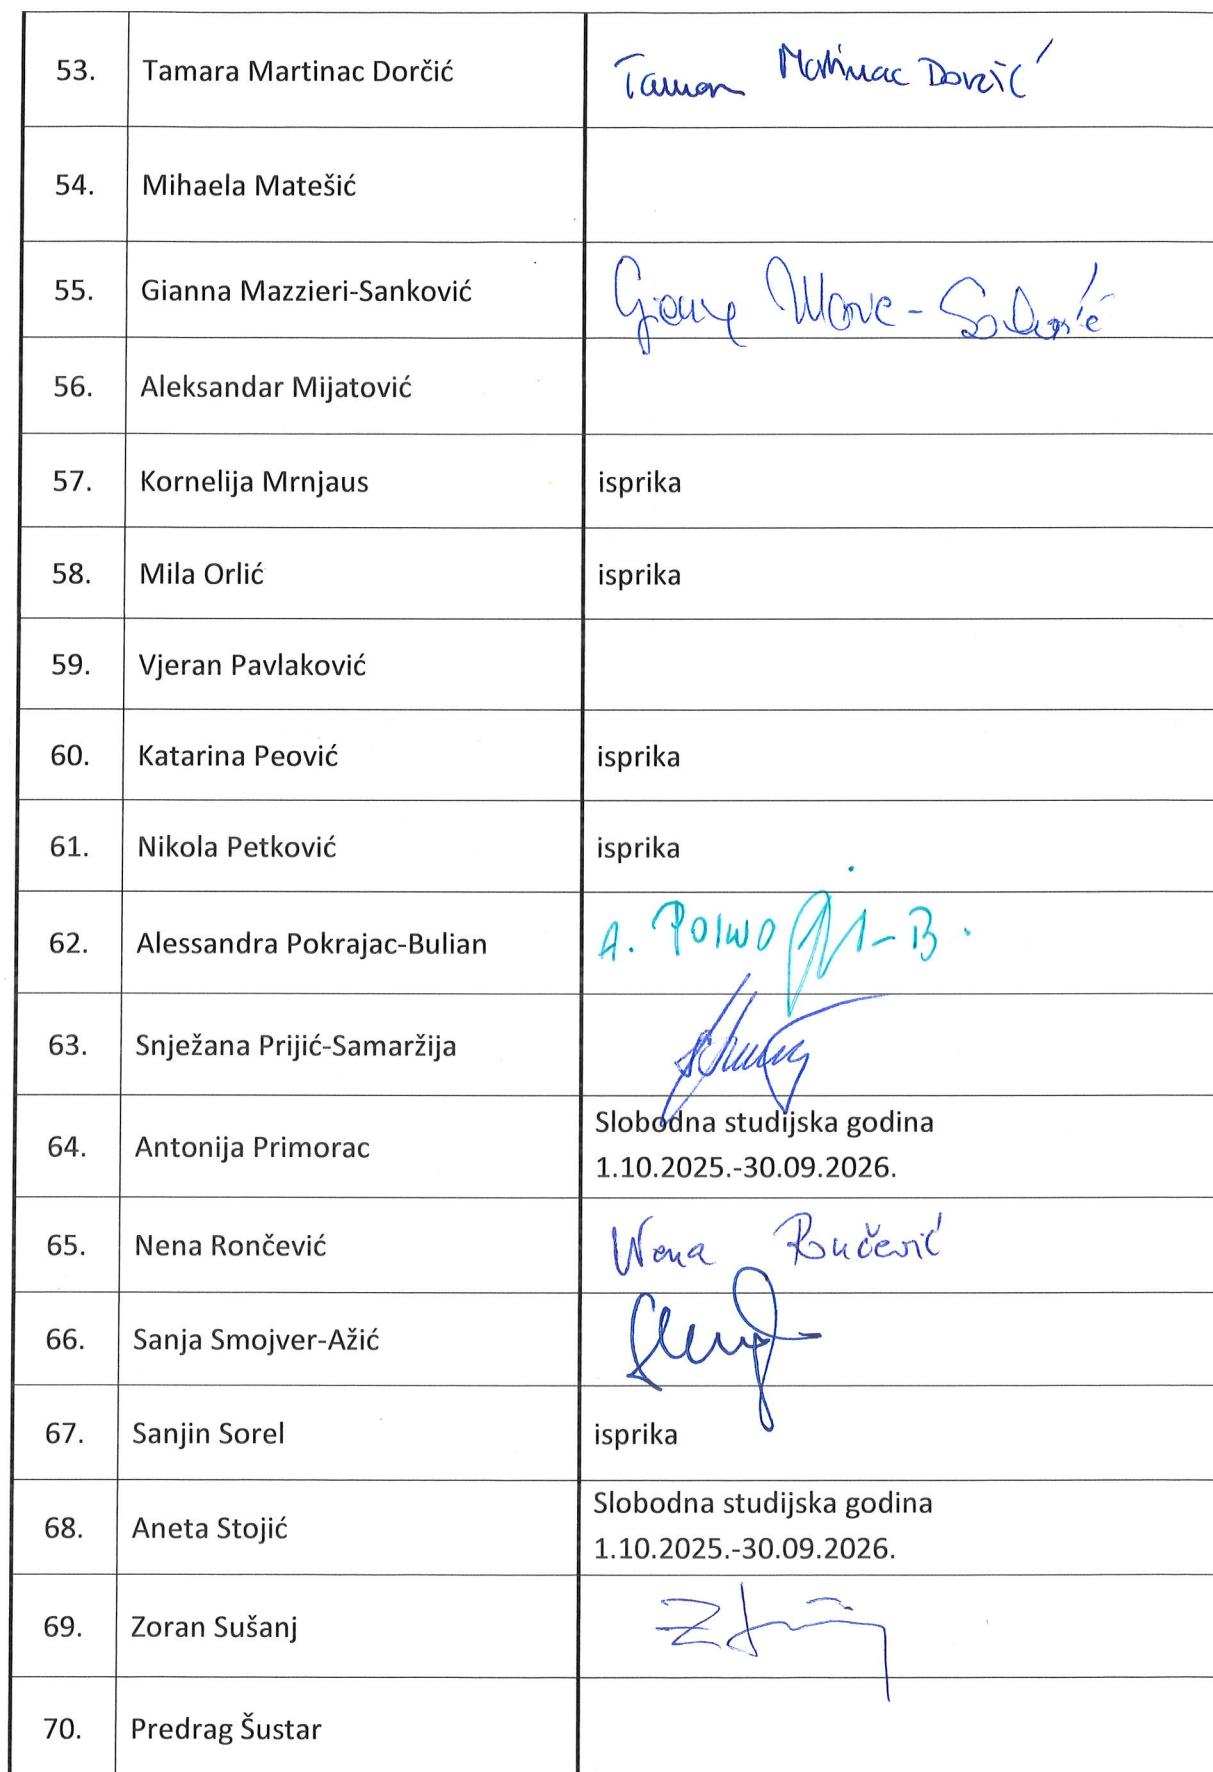 53. Tamara Martinac Dorčić Tamara Martinac Dorčić
54. Mihaela Matešić
55. Gianna Mazzieri-Sanković
56. Aleksandar Mijatović
57. Kornelija Mrnjaus isprika
58. Mila Orlić isprika
59. Vjeran Pavlaković
60. Katarina Peović isprika
61. Nikola Petković isprika
62. Alessandra Pokrajac-Bulian A.
63. Snježana Prijić-Samaržija
Slobodna studijska godina
64. Antonija Primorac
1.10.2025.-30.09.2026.
65. Nena Rončević Nena Rončević
66. Sanja Smojver-Ažić
67. Sanjin Sorel isprika
Slobodna studijska godina
68. Aneta Stojić
1.10.2025.-30.09.2026.
69. Zoran Sušanj
70. Predrag Šustar